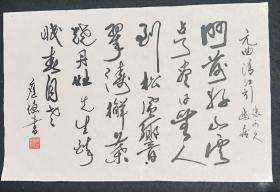 元曲清江引
张可久
幽居
門前好山雲
占了盡日無人
到松風響
翠濤槲葉
燒丹灶先生醉
眠春自老